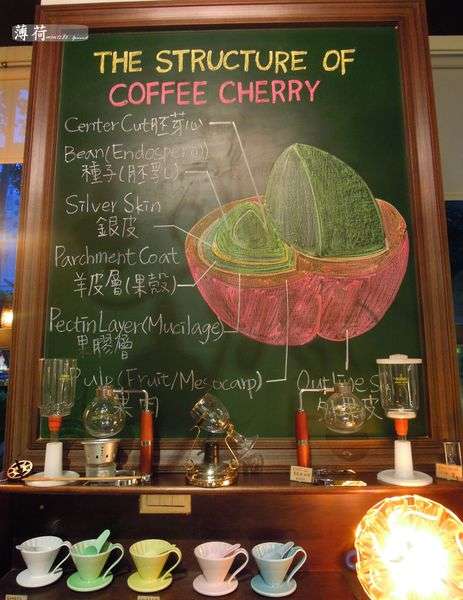 薄荷
THE STRUCTURE OF
COFFEE CHERRY
Center Cut胚芽心
Bean(Endosperm)
種子(胚乳)
Silver Skin
銀皮
Parchment Coat
羊皮層(果殼)
Pectin Layer(Mucilage)
果膠層
Pulp(Fruit/Mesocarp)
果肉
Outline S
外果皮